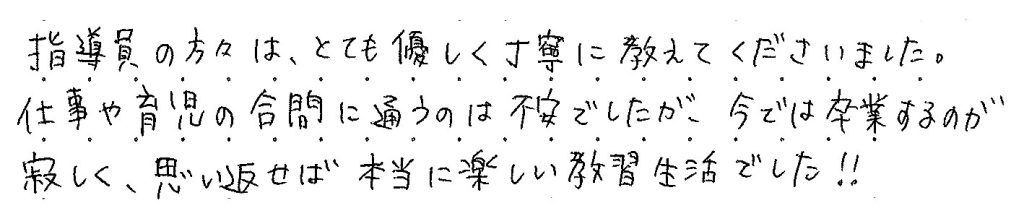 指導員の方々は、とても優しく丁寧に教えてくださいました。
仕事や育児の合間に通うのは不安でしたが、今では卒業するのが
寂しく、思い返せば本当に楽しい教習生活でした!!